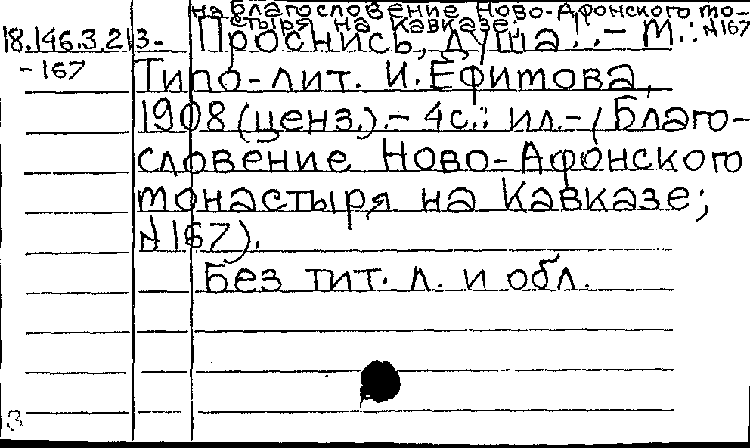 на Благословение Ново-Афонского мо-
стыря на Кавказе; №167
18.146.3.213- Проснись, душа!.- М.:
-167 Типо-лит. И. Ефимова,
1908 (ценз.).- 4с.: ил.-(Благо-
словение Ново-Афонского
монастыря на Кавказе;
№167).
Без тит. л. и обл.